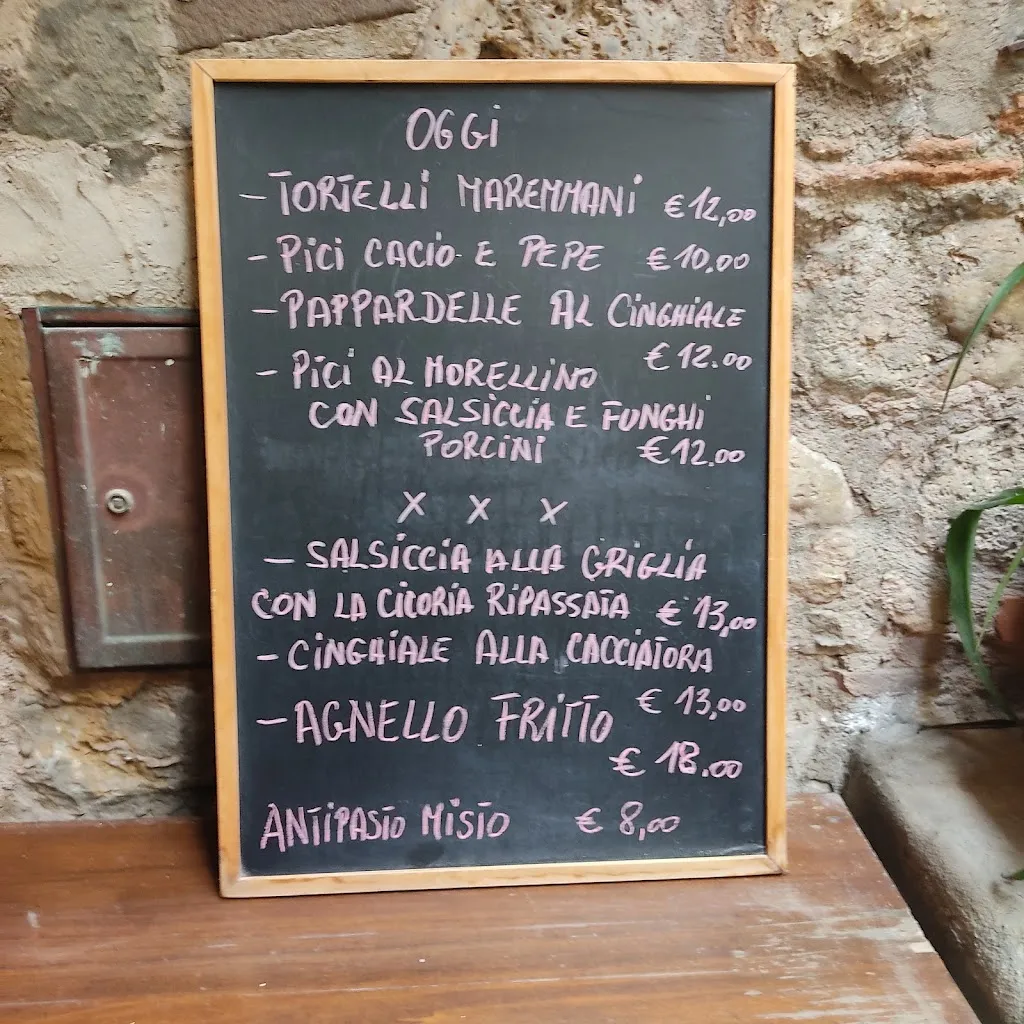 OGGI
- TORTELLI MAREMMANI €12,00
- PICI CACIO E PEPE €10.00
- PAPPARDELLE AL CINGHIALE
€12.00
- PICI AL MORELLINO
CON SALSICCIA E FUNGHI
PORCINI €12.00
X X X
- SALSICCIA ALLA GRIGLIA
CON LA CICORIA RIPASSATA €13,00
- CINGHIALE ALLA CACCIATORA
€13,00
- AGNELLO FRITTO
€18.00
ANTIPASTO MISTO €8,00